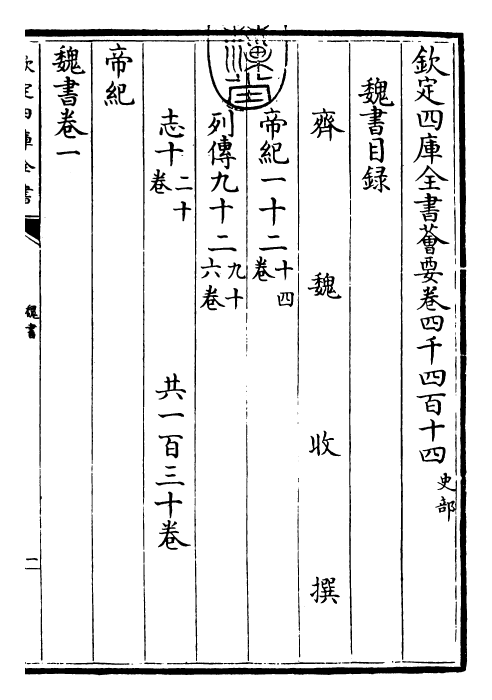 欽定四庫全書薈要卷四千四百十四 史部
魏書目録
齊 魏 收 撰
帝紀一十二 十四卷
列傳九十二 九十六卷
志十 二十卷 共一百三十卷
帝紀
魏書卷一
欽定四庫全書
魏書
一